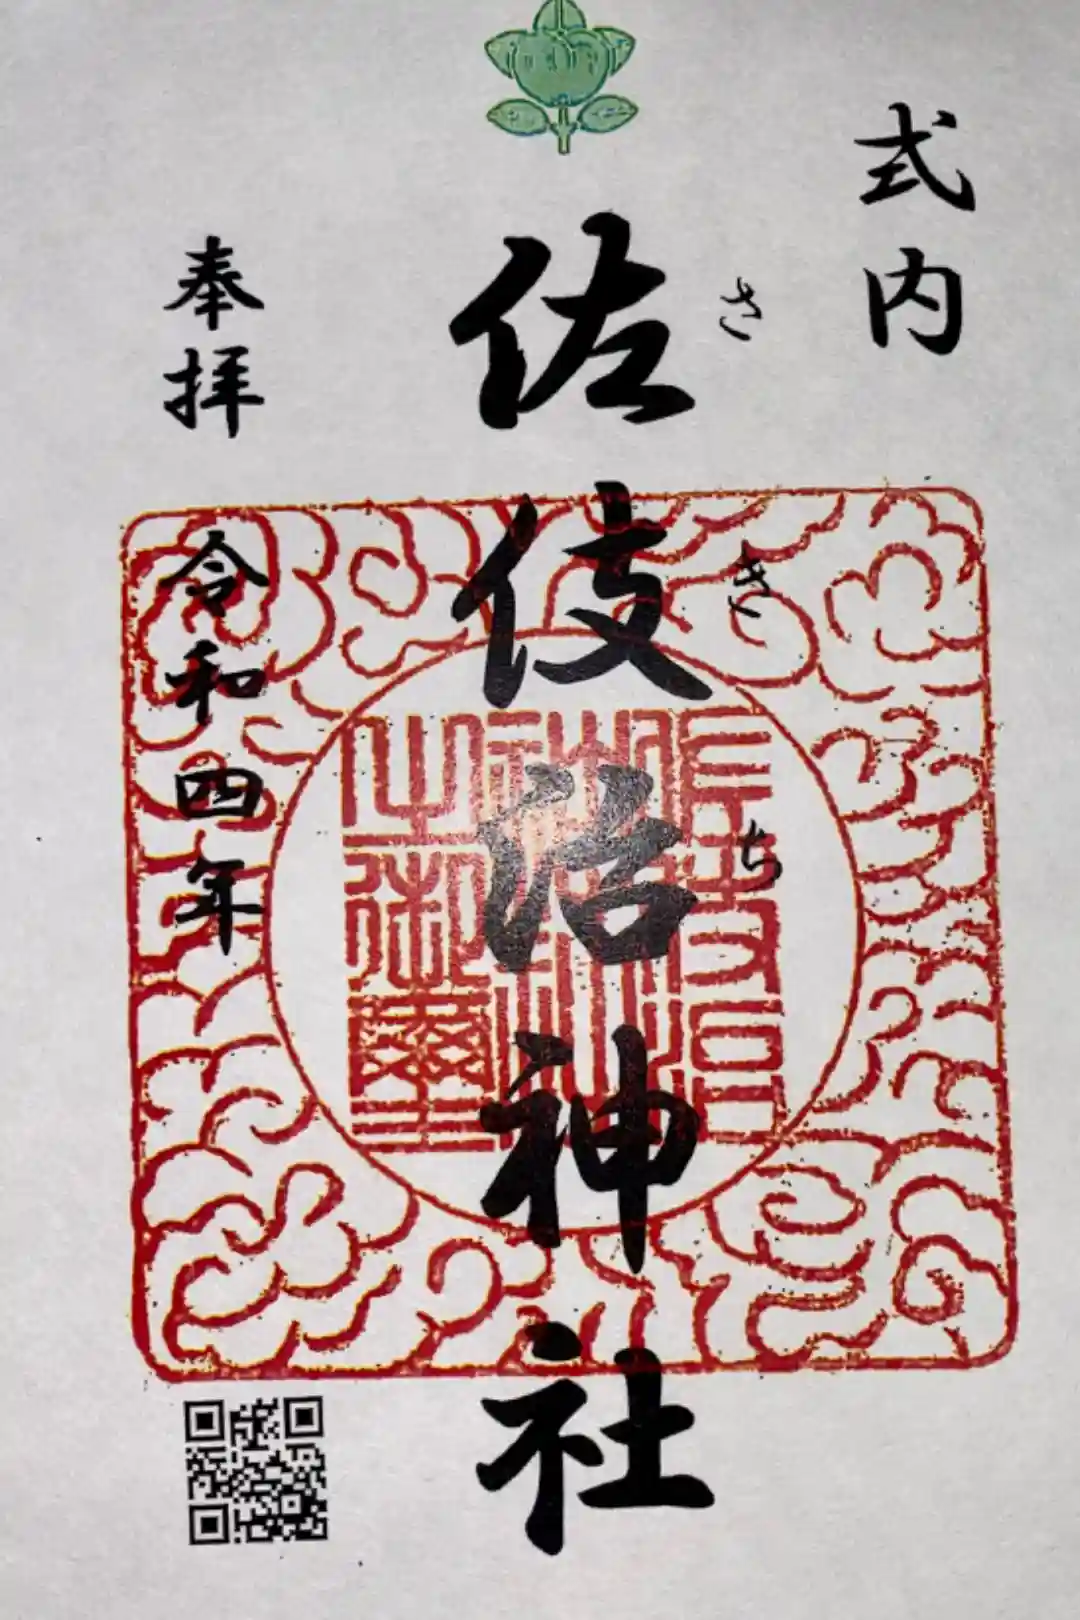 式内
佐伎治神社
さきち
奉拝
令和四年